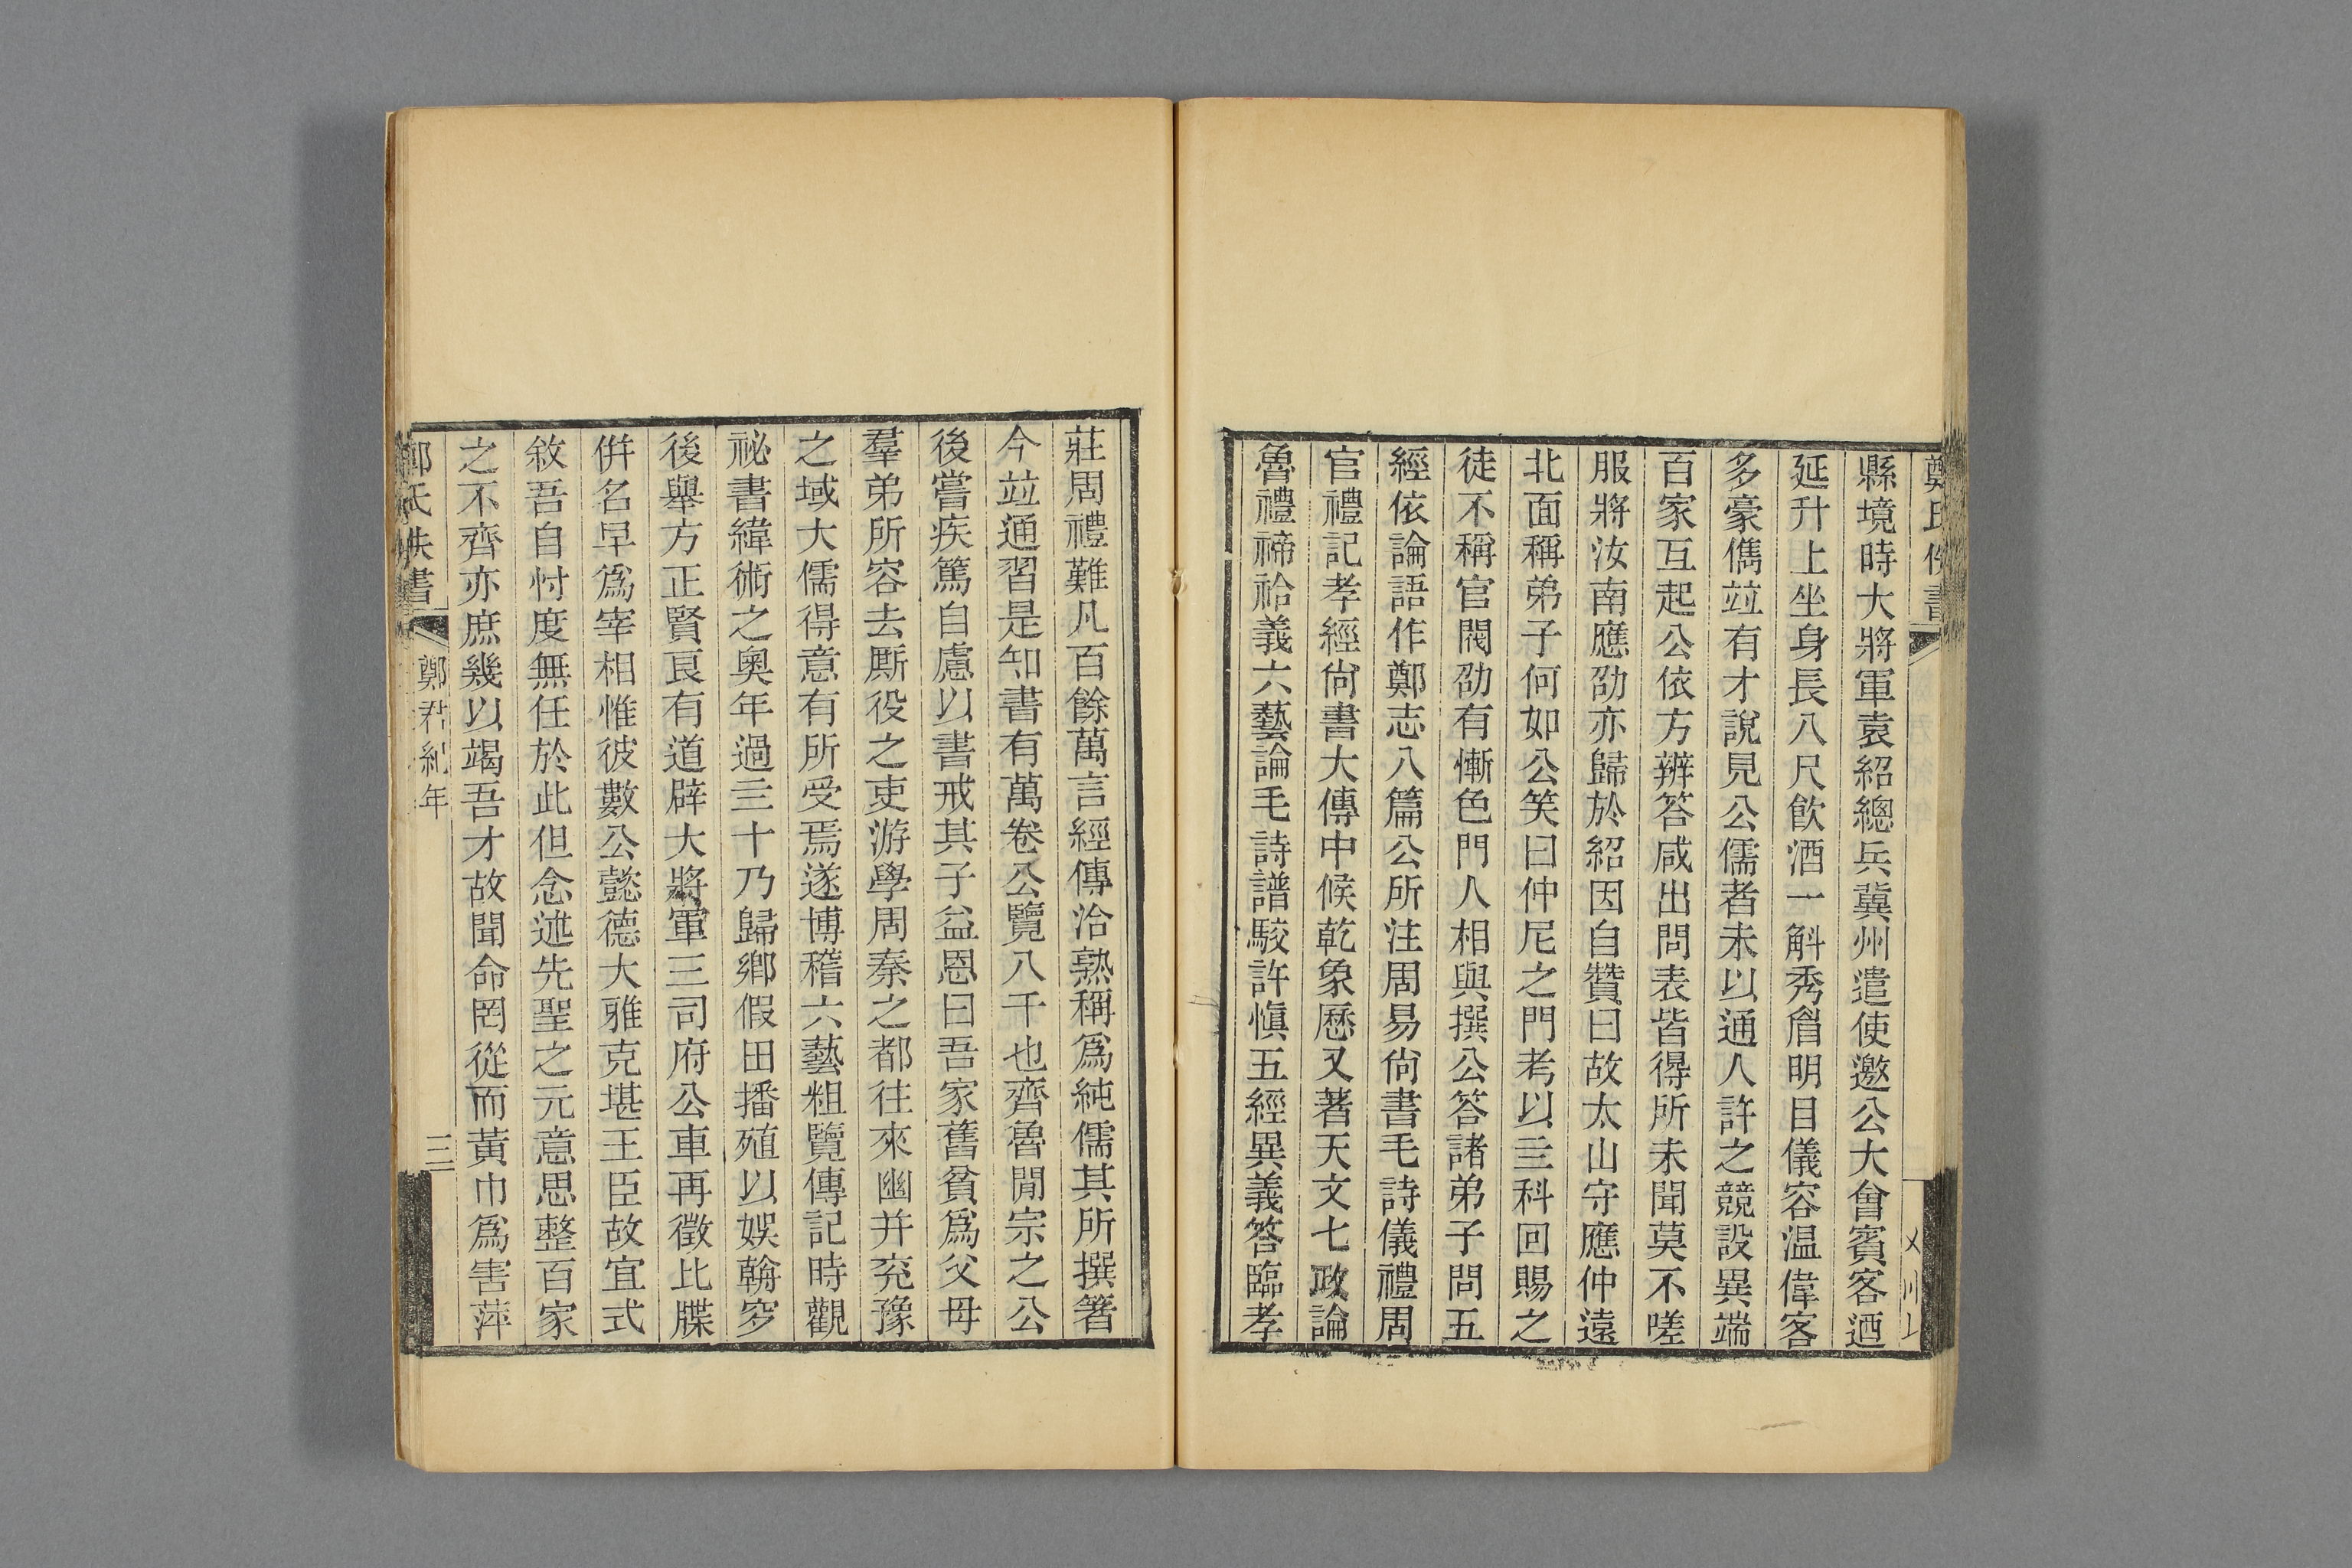 鄭氏佚書
縣境時大將軍袁紹總兵冀州遣使邀公大會賓客迺
延升上坐身長八尺飮酒一斛秀眉明目儀容温偉客
多豪儁竝有才說見公儒者未以通人許之競設異端
百家互起公依方辨答咸出問表皆得所未聞莫不嗟
服將汝南應劭亦歸於紹因自贊曰故太山守應仲遠
北面稱弟子何如公笑曰仲尼之門考以三科回賜之
徒不稱官閥劭有慚色門人相與撰公答諸弟子問五
經依論語作鄭志八篇公所注周易尙書毛詩儀禮周
官禮記孝經尙書大傳中候乾象厯又著天文七政論
魯禮禘祫義六藝論毛詩譜駮許愼五經異義答臨孝
莊周禮難凡百餘萬言經傳洽熟稱爲純儒其所撰箸
今竝通習是知書有萬卷公覽八千也齊魯閒宗之公
後嘗疾篤自慮以書戒其子益恩曰吾家舊貧爲父母
羣弟所容去厮役之吏游學周秦之都往來幽并兗豫
之域大儒得意有所受焉遂博稽六藝粗覽傳記時觀
祕書緯術之奧年過三十乃歸鄉假田播殖以娛翰窔
後舉方正賢良有道辟大將軍三司府公車再徵比牒
倂名早爲宰相惟彼數公懿德大雅克堪王臣故宜式
敘吾自忖度無任於此但念述先聖之元意思整百家
之不齊亦庶幾以竭吾才故聞命罔從而黃巾爲害萍
鄭氏佚書
鄭君紀年
三